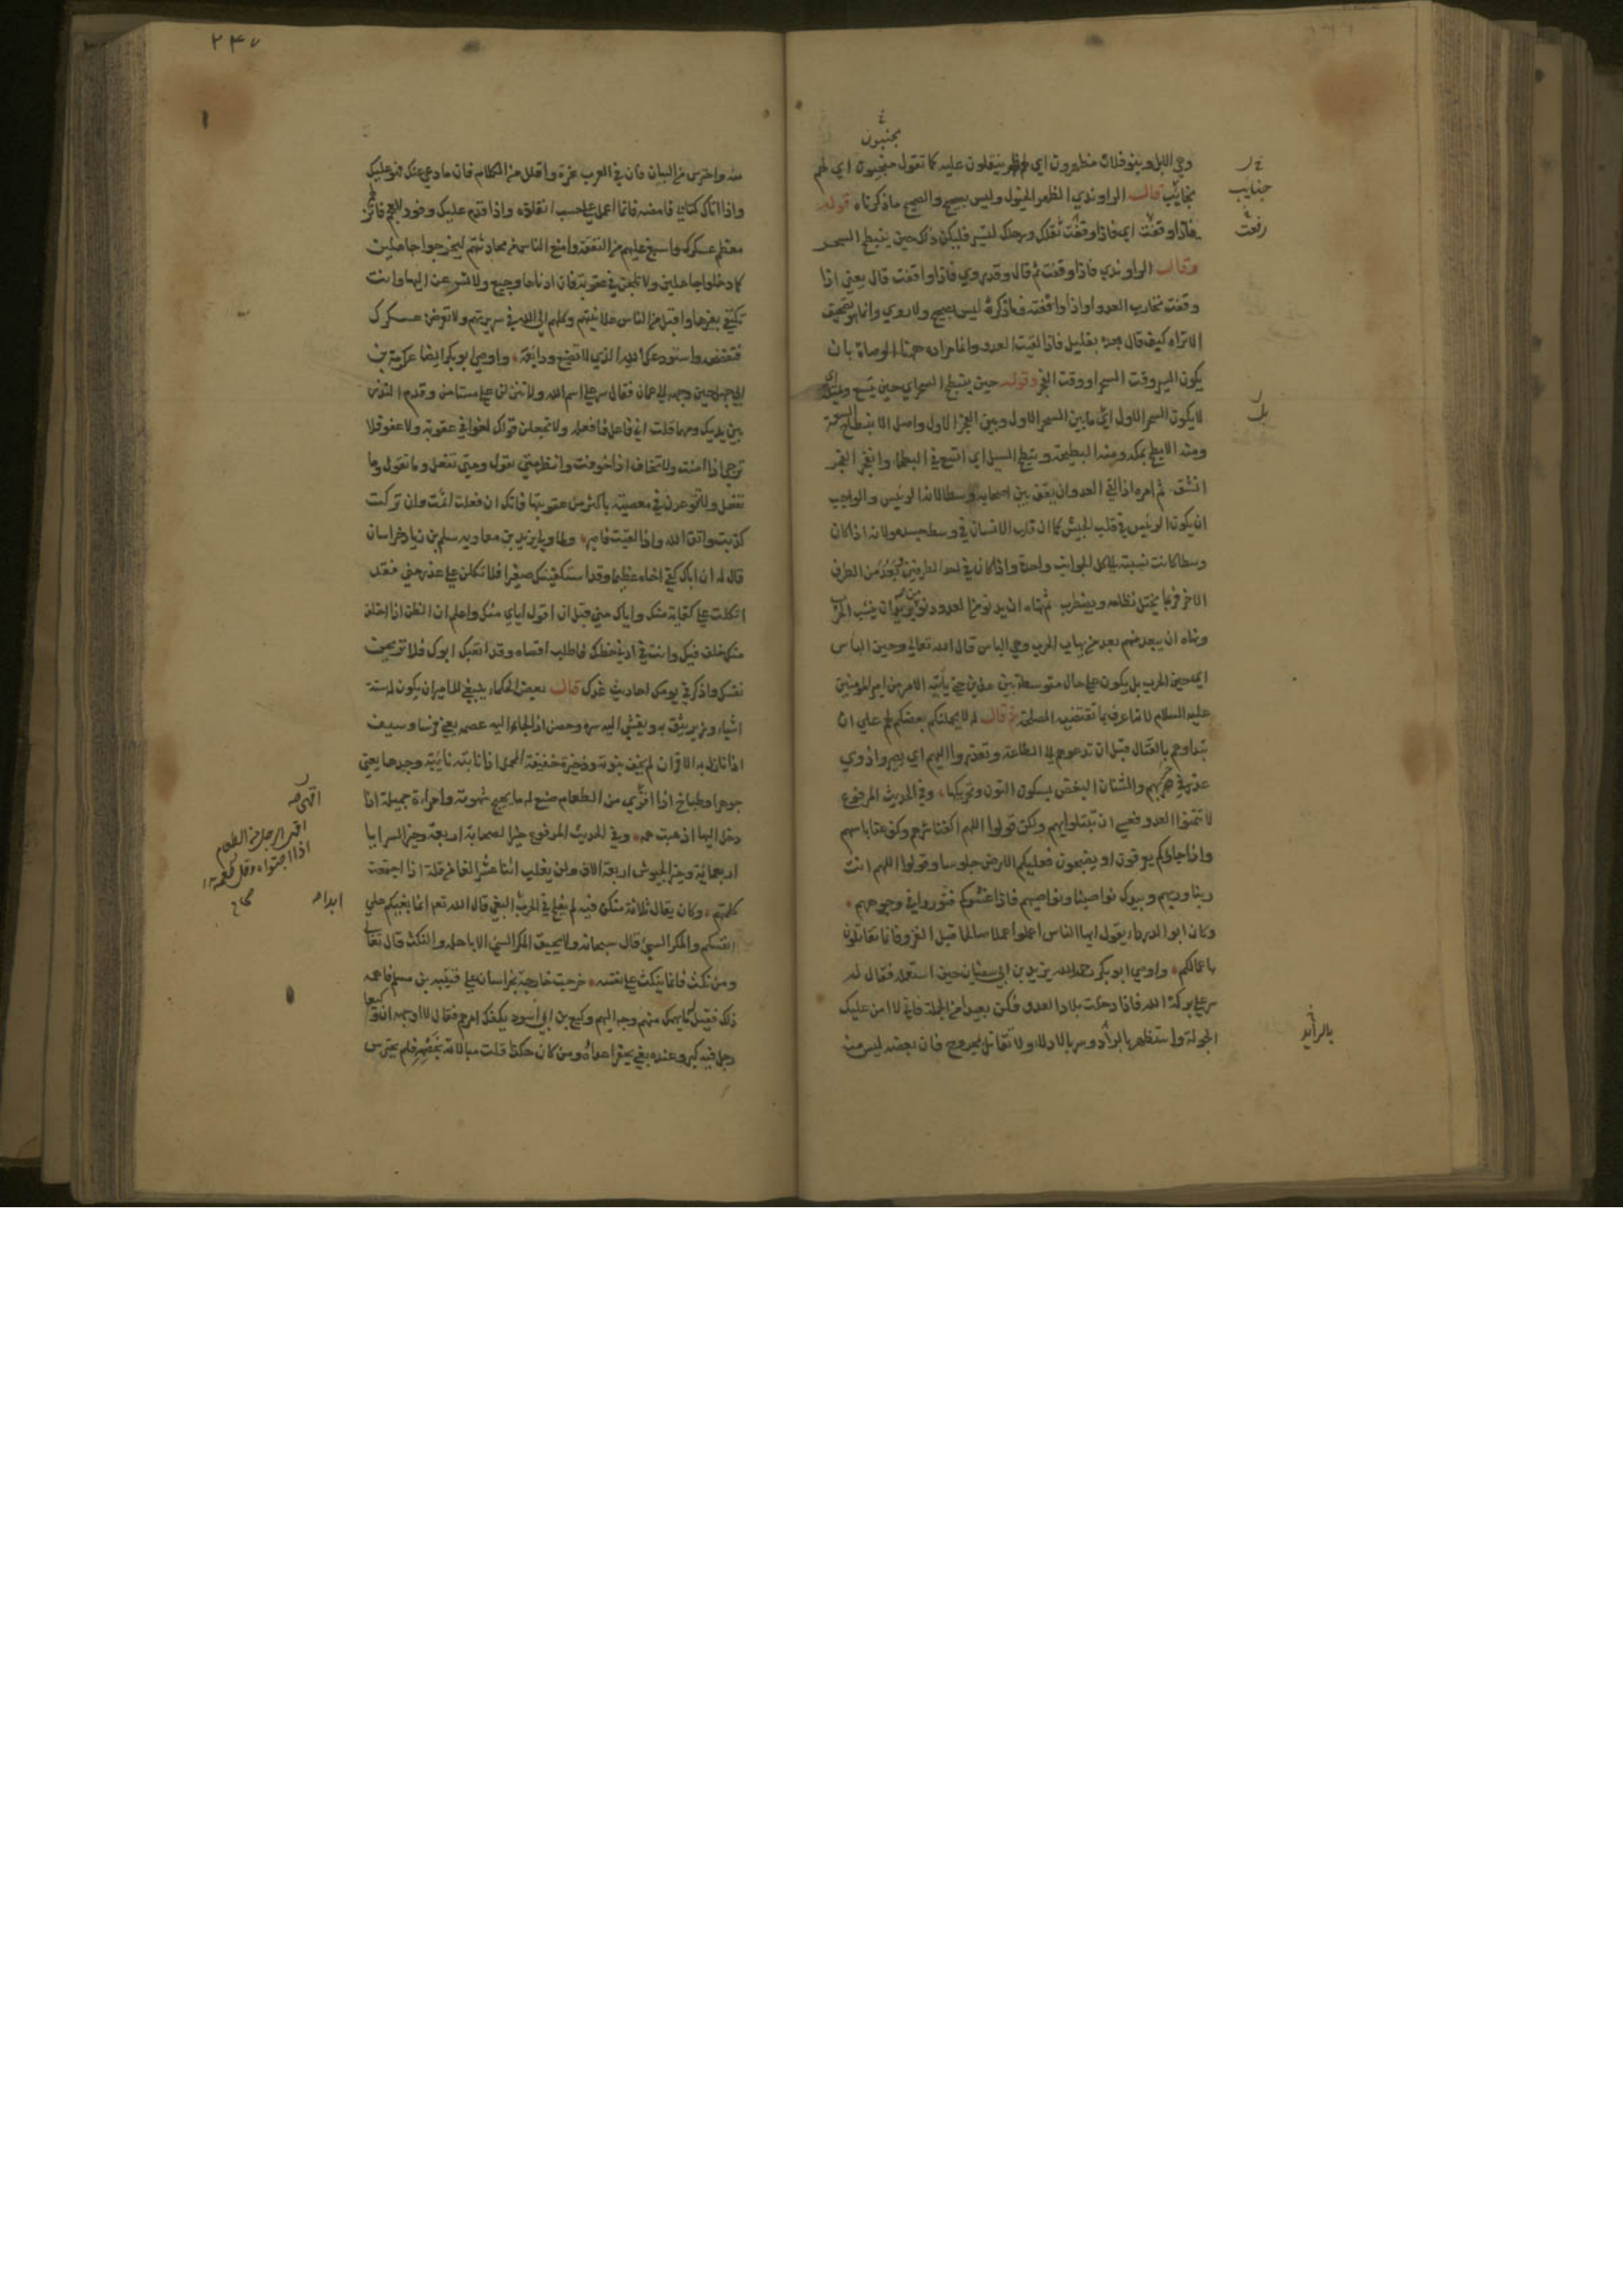 وهي الابل وبنو فلان مظهرون اي لهم ظهر ينقلون عليه كما تقول منجبون اي لهم
نجائب قال الراوندي الظهر الخيول وليس بصحيح والصحيح ما ذكرناه قوله
فاذا وقفت اي فاذا وقفت ثقلك ورحلك لتسير فليكن ذلك حين ينبطح السحر
وقال الراوندي فاذا وقفت ثم قال وقد روي فاذا واقفت قال يعني اذا
وقفت تحارب العدو او اذا واقفته وما ذكره ليس بصحيح ولا روي وانما هو تصحيف
الا تراه كيف قال بعده بقليل فاذا لقيت العدو وانما مراده ههنا الوصاة بان
يكون السير وقت السحر او وقت الفجر وقوله حين ينبطح السحر اي حين يتسع ويمتد اي
لا يكون السحر الاول اي ما بين السحر الاول وبين الفجر الاول واصل الانبطاح السعة
ومنه الابطح بمكة ومنه البطيحة وتبطح السيل اي اتسع في البطحاء وانفجر الفجر
انشق ثم امره اذا لقي العدو ان يقف بين اصحابه وسطا لانه الرئيس والواجب
ان يكون الرئيس في قلب الجيش كما ان قلب الانسان في وسط جسده ولانه اذا كان
وسطا كانت نسبته الى كل الجوانب واحدة واذا كان في احد الطرفين بعد من الطرف
الاخر فربما يختل نظامه ويضطرب ثم نهاه ان يدنو من العدو دنو من يريد ان ينشب الحرب
ونهاه ان يبعد منهم بعد من يهاب الحرب وهي الباس قال الله تعالى وحين الباس
اي حين الحرب بل يكون على حال متوسطة بين هذين حتى ياتيه الامر من امير المؤمنين
عليه السلام لانه اعرف بما تقتضيه المصلحة ثم قال له لا يحملنكم بغضكم لهم على ان
تبداوهم بالقتال قبل ان تدعوهم الى الطاعة وتعذروا اليهم اي تصيروا ذوي
عذر في حربهم والشنان البغض بسكون النون وتحريكها وفي الحديث المرفوع
لا تتمنوا العدو فعسى ان تبتلوا بهم ولكن قولوا اللهم اكفنا شرهم وكف عنا باسهم
واذا جاؤكم يعرفون او يضجون فعليكم الارض جلوسا وقولوا اللهم انت
ربنا وربهم وبيدك نواصينا ونواصيهم فاذا غشوكم فثوروا في وجوههم
وكان ابو الدرداء يقول ايها الناس اعملوا عملا صالحا قبل الغزو فانما تقاتلون
باعمالكم واوصى ابو بكر رحمه الله يزيد بن ابي سفيان حين استعمله فقال له
سر على بركة الله فاذا دخلت بلاد العدو فكن بعيدا من الحملة فاني لا امن عليك
الجولة واستظهر بالزاد وسر بالادلاء ولا تقاتل بمجروح فان بعضه ليس منه
منجبون
جنايب
بل
بالرأيد
٢٤٧
منه واحترس من البيات فان في العرب غرة واقلل من الكلام فان ما وعي عنك هو عليك
واذا اتاك كتابي فامضه فانما اعمل على حسب انفاذه واذا قدم عليك وفود العجم فانزلهم
معظم عسكرك واسبغ عليهم من النفقة وامنع الناس من محادثتهم ليخرجوا جاهلين
كما دخلوا جاهلين ولا تلحن في عقوبة فان ادناها وجيع ولا تسرعن اليها وانت
تكتفي بغيرها واقبل من الناس علانيتهم وكلهم الى الله في سريرتهم ولا تعرض عسكرك
فتفضحه واستودعك الله الذي لا تضيع ودايعه واوصى ابو بكر ايضا عكرمة بن
ابي جهل حين وجهه الى عمان فقال سر على اسم الله ولا تنزلن على مستامن وقدم النذر
بين يديك ومهما قلت اني فاعل فافعله ولا تجعلن قولك لغوا في عقوبة ولا عفو فلا
ترجى اذا امنت ولا تخاف اذا خوفت وانظر متى تقول ومتى تفعل وما تقول وما
تفعل ولا تتوعدن في معصية باكثر من عقوبتها فانك ان فعلت اثمت وان تركت
كذبت واتق الله واذا لقيت فاصبر ولما ولى يزيد بن معاوية سلم بن زياد خراسان
قال له ان اباك كفى اخاه عظيما وقد استكفيتك صغيرا فلا تتكلن على عذر مني فقد
اتكلت على كفاية منك واياك مني قبل ان اقول اياي منك واعلم ان الظن اذا اخلف
منك خلف فيك وانت في ادنى حظك فاطلب اقصاه وقد اتعبك ابوك فلا تريحن
نفسك واذكر في يومك احاديث غدك قال بعض الحكماء ينبغي للامير ان يكون له ستة
اشياء وزير يثق به ويفشي اليه سره وحصن اذا لجا اليه عصمه يعني فرسا وسيف
اذا نازل به الاقران لم يخف نبوته وذخيرة خفيفة المحمل اذا نابته نائبة وجدها يعني
جوهرا وطباخ اذا اقوى من الطعام صنع له ما يهيج شهوته وامراة جميلة اذا
دخل اليها اذهبت همه وفي الحديث المرفوع خير الصحابة اربعة وخير السرايا
اربعمائة وخير الجيوش اربعة الاف ولن يغلب اثنا عشر الفا من قلة اذا اجتمعت
كلمتهم وكان يقال ثلاثة من كن فيه لم يفلح في الحرب البغي قال الله تعالى انما بغيكم على
انفسكم والمكر السيئ قال سبحانه ولا يحيق المكر السيئ الا باهله والنكث قال تعالى
ومن نكث فانما ينكث على نفسه خرجت خارجة بخراسان على قتيبة بن مسلم فاهمه
ذلك فقيل ما يهمك منهم وجه اليهم وكيع بن ابي اسود يكفك امرهم فقال لا اوجهه ان وكيعا
رجل فيه كبر وعنده بغي يحقر اعداءه ومن كان هكذا قلت مبالاته بخصمه فلم يحترس
اقهى
اقهى الرجل من الطعام
اذا اجتواه وقل طعمه
ابدا